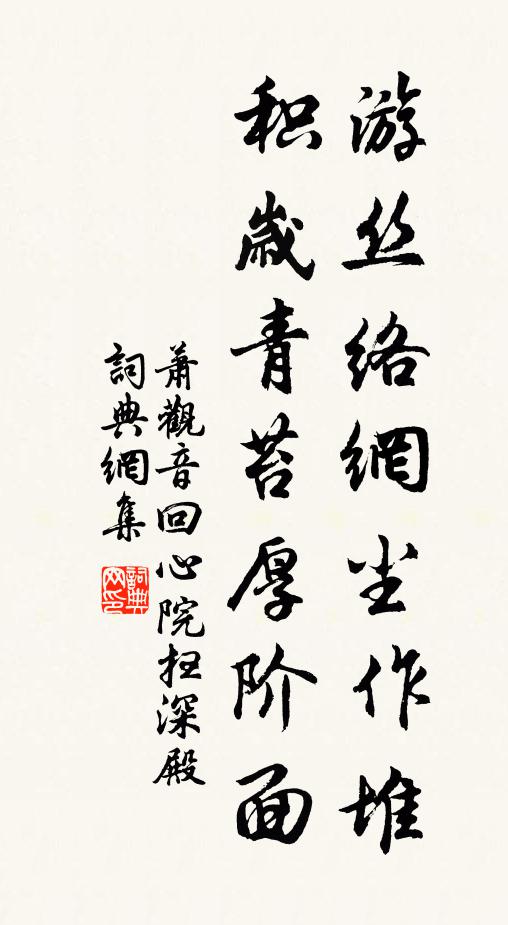 游丝络網尘作堆
积歲青苔厚阶面
萧觀音回心院扫深殿
詞典網集
詞典
网印